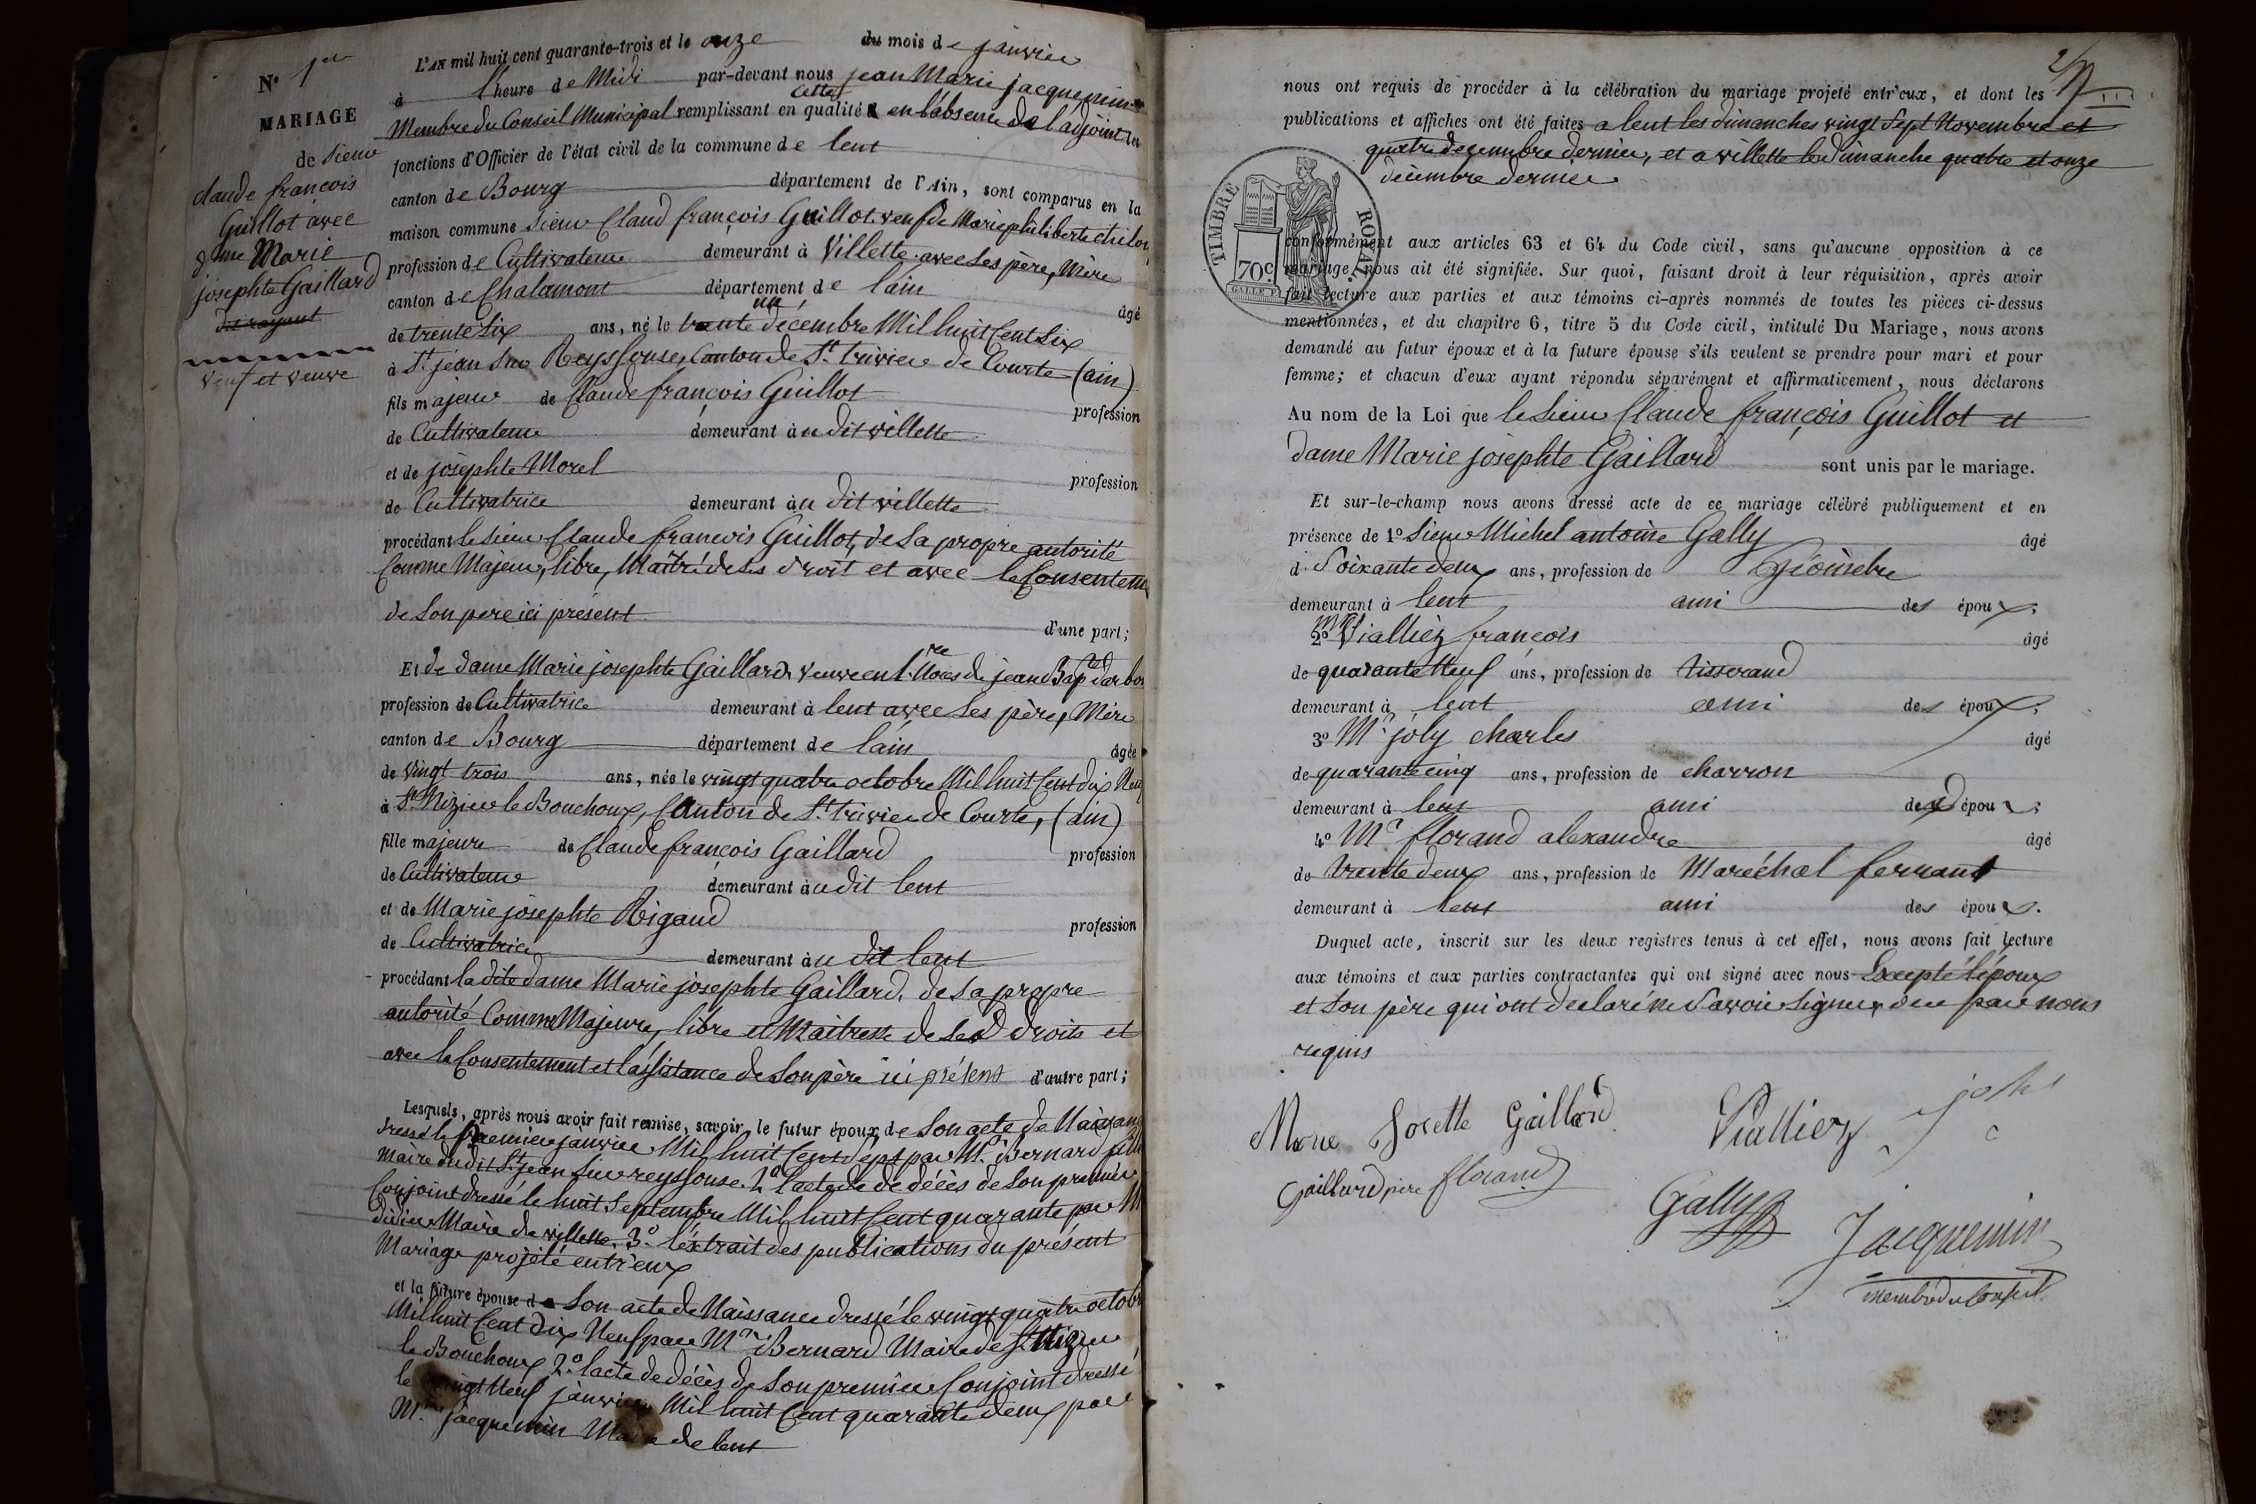 N° 1er
MARIAGE
de Sieur
claude françois
Guillot avec
dame Marie
josephte Gaillard
veuf et veuve
L'AN mil huit cent quarante-trois et le onze du mois de janvier
à l'heure de Midi par-devant nous jean Marie jacquemin
Membre du Conseil Municipal remplissant en cette qualité en l'absence de l'adjoint les
fonctions d'Officier de l'état civil de la commune de lent
canton de Bourg département de l'Ain, sont comparus en la
maison commune Sieur Claud françois Guillot veuf de Marie philiberte
profession de Cultivateur demeurant à Villette avec ses père, Mère
canton de Chalamont département de l'ain âgé
de trente Six ans, né le trente un décembre Mil huit Cent Six
à St jean Sur Reyssouse, Canton de St trivier de Courte (ain)
fils majeur de Claude françois Guillot profession
de Cultivateur demeurant à u dit villette
et de josephte Morel profession
de Cultivatrice demeurant à u dit villette
procédant le Sieur Claude francois Guillot, de Sa propre autorité
Comme Majeur, libre, Maître de ses droit et avec le Consenteme
de Son pere ici présent d'une part;
Et de dame Marie josephte Gaillard veuve en 1re Noces de jean Bapte
profession de Cultivatrice demeurant à lent avec Ses père, Mère
canton de Bourg département de l'ain âgée
de vingt trois ans, née le vingt quatre octobre Mil huit Cent dix Neuf
à St Nizier le Bouchoux, Canton de St trivier de Courte, (ain)
fille majeure de Claude françois Gaillard profession
de Cultivateur demeurant à u dit lent
et de Marie josephte Rigaud profession
de Cultivatrice demeurant à u dit lent
procédant la dite dame Marie josephte Gaillard, de Sa propre
autorité Comme Majeure, libre et Maitresse de Ses droits et
avec le Consentement et l'assistance de Son père ici présent d'autre part;
Lesquels, après nous avoir fait remise, savoir, le futur époux de Son acte de Naissance
dressé le premier janvier Mil huit Cent Sept par Mr Bernard
Maire du dit St jean Sur reyssouse. 2° l'acte de décès de Son premier
Conjoint dressé le huit Septembre Mil huit Cent quarante par M
didier Maire de villette. 3° l'extrait des publications du présent
Mariage projeté entr'eux
et la future épouse de Son acte de Naissance dressé le vingt quatre octob
Mil huit Cent Dix Neuf par Mr Bernard Maire de St Nizier
le Bouchoux 2° l'acte de décès de Son premier Conjoint dressé
le vingt Neuf janvier Mil huit Cent quarante deux par
Mr jacquemin Maire de lent
2
nous ont requis de procéder à la célébration du mariage projeté entr'eux, et dont les
publications et affiches ont été faites a lent les dimanches vingt Sept Novembre et
quatre decembre dernier, et a villette les Dimanche quatre et onze
décembre dernier
TIMBRE ROYAL.
70c.
conformément aux articles 63 et 64 du Code civil, sans qu'aucune opposition à ce
mariage nous ait été signifiée. Sur quoi, faisant droit à leur réquisition, après avoir
fait lecture aux parties et aux témoins ci-après nommés de toutes les pièces ci-dessus
mentionnées, et du chapitre 6, titre 5 du Code civil, intitulé Du Mariage, nous avons
demandé au futur époux et à la future épouse s'ils veulent se prendre pour mari et pour
femme; et chacun d'eux ayant répondu séparément et affirmativement, nous déclarons
Au nom de la Loi que le Sieur Claude françois Guillot et
dame Marie josephte Gaillard sont unis par le mariage.
Et sur-le-champ nous avons dressé acte de ce mariage célébré publiquement et en
présence de 1° Sieur Michel antoine Gally âgé
d. Soixante deux ans, profession de Géomètre
demeurant à lent ami des époux;
2° Mr Viallier françois âgé
de quarante Neuf ans, profession de tisserand
demeurant à lent ami des époux;
3° Mr joly charles âgé
de quarante cinq ans, profession de charron
demeurant à lent ami des époux;
4° Mr florand alexandre âgé
de trente deux ans, profession de Maréchal ferrant
demeurant à lent ami des époux.
Duquel acte, inscrit sur les deux registres tenus à cet effet, nous avons fait lecture
aux témoins et aux parties contractantes qui ont signé avec nous Excepté l'époux
et Son père qui ont déclaré ne Savoir Signer, de ce par nous
requis
Marie Josette Gaillard Viallier joly c
Gaillard père florand Gally Jacquemin
membre du Conseil